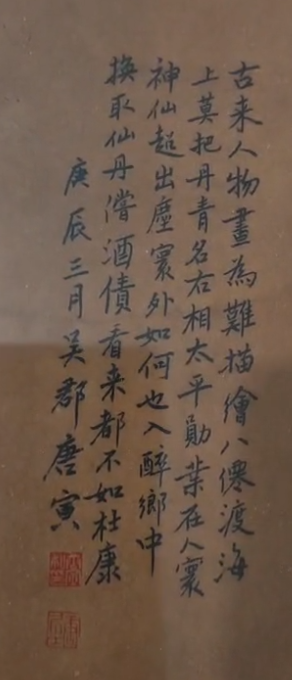 古来人物畫為難描繪八僊渡海
上莫把丹青名右相太平勛業在人寰
神仙超出塵寰外如何也入醉鄉中
換取仙丹澘酒債看来都不如杜康
庚辰三月吴郡唐寅